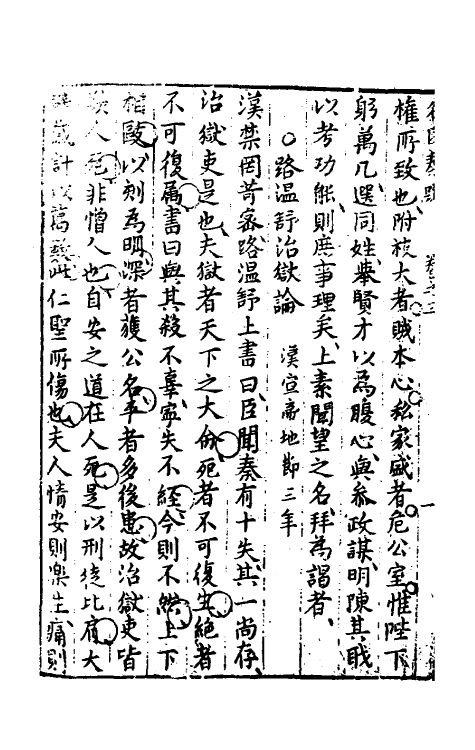 權所致也附枝大者賊本心私家盛者危公室惟陛下
躬萬几選同姓舉賢才以為腹心與叅政謀明陳其職
以考功能則庶事理矣上素聞望之名拜為謁者
○路温舒治獄論　漢宣帝地節三年
漢禁罔苛密路温舒上書曰臣聞秦有十失其一尚存
治獄吏是也夫獄者天下之大命死者不可復生絕者
不可復屬書曰與其殺不辜寧失不經今則不然上下
相敺以刻為明深者獲公名平者多後患故治獄吏皆
欲人死非憎人也自安之道在人死是以刑徒比肩大
辟歲計以萬數此仁聖所傷也夫人情安則樂生痛則